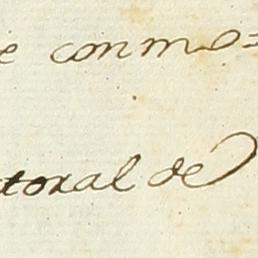 e conmo=
toral de